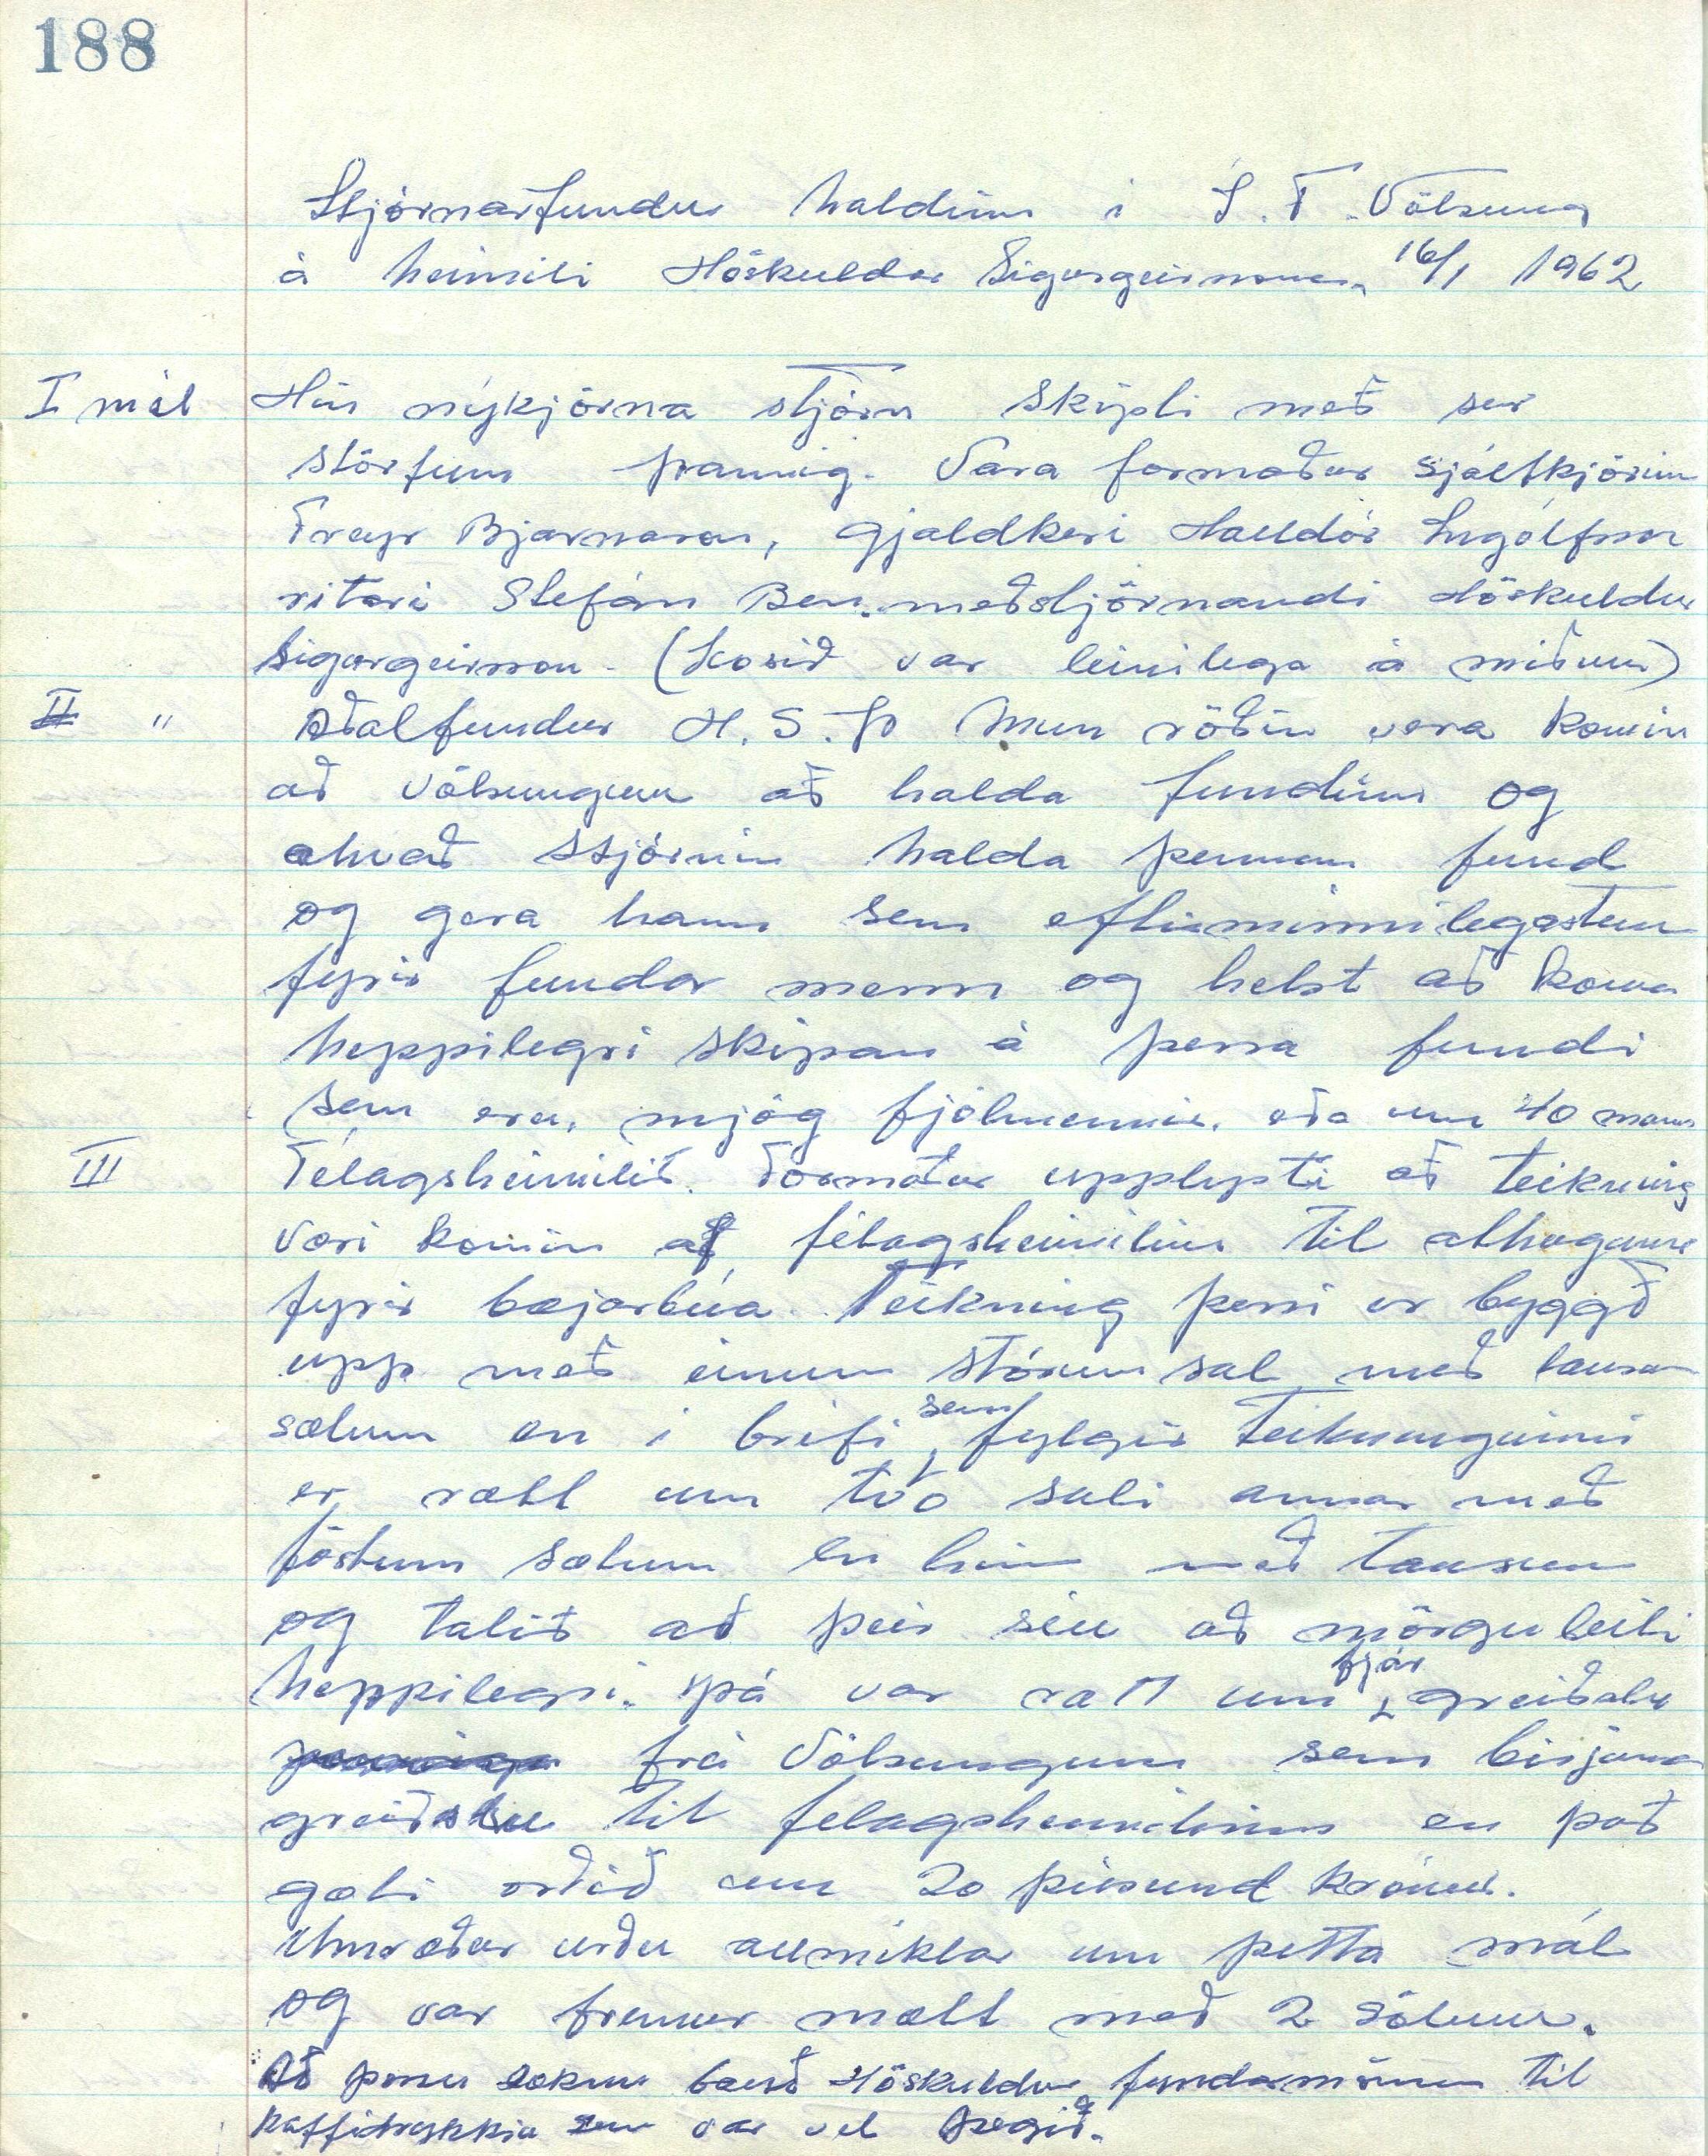 188
Stjórnarfundur haldinn í Í.F. Völsung
á heimili Höskuldar Sigurgeirssonar 16/1 1962
I mál Hin nýkjörna stjórn skipti með ser
störfum þannig. Vara formaður sjálfkjörinn
Freyr Bjarnason, gjaldkeri Halldór Ingólfsson
ritari Stefán Ben. meðstjórnandi Höskuldur
Sigurgeirsson. (Kosið var leinilega á miðum)
II " Aðalfundur H.S.Þ mun röðin vera komin
að Völsungum að halda fundinn og
ahvað stjórnin halda þennan fund
og gera hann sem eftirminnilegastan
fyrir fundar menn og helst að koma
heppilegri skipan á þessa fundi
sem eru, mjög fjölmennir, eða um 40 manns
III Félagsheimilið. Formaður upplysti að teikning
væri komin af félagsheimilinu til athugunar
fyrir bæjarbúa. Teikning þessi er byggð
upp með einum stórum sal með lausum
sætum en i bréfi sem fylgir teikningunni
er rætt um tvo sali annar með
föstum sætum en hinn með lausum
og talið að þeir séu að mörgu leiti
heppilegri. þá var rætt um fjár greiðslu
frá Völsungum sem birjunar
greiðslu til felagsheimilisins en það
gæti orðið um 20 þúsund krónur.
Umræður urðu allmiklar um þetta mál
og var fremur mælt með 2 sölum.
Að þessu loknu bauð Höskuldur fundarmönnum til
kaffidrykkju sem var vel þegið.